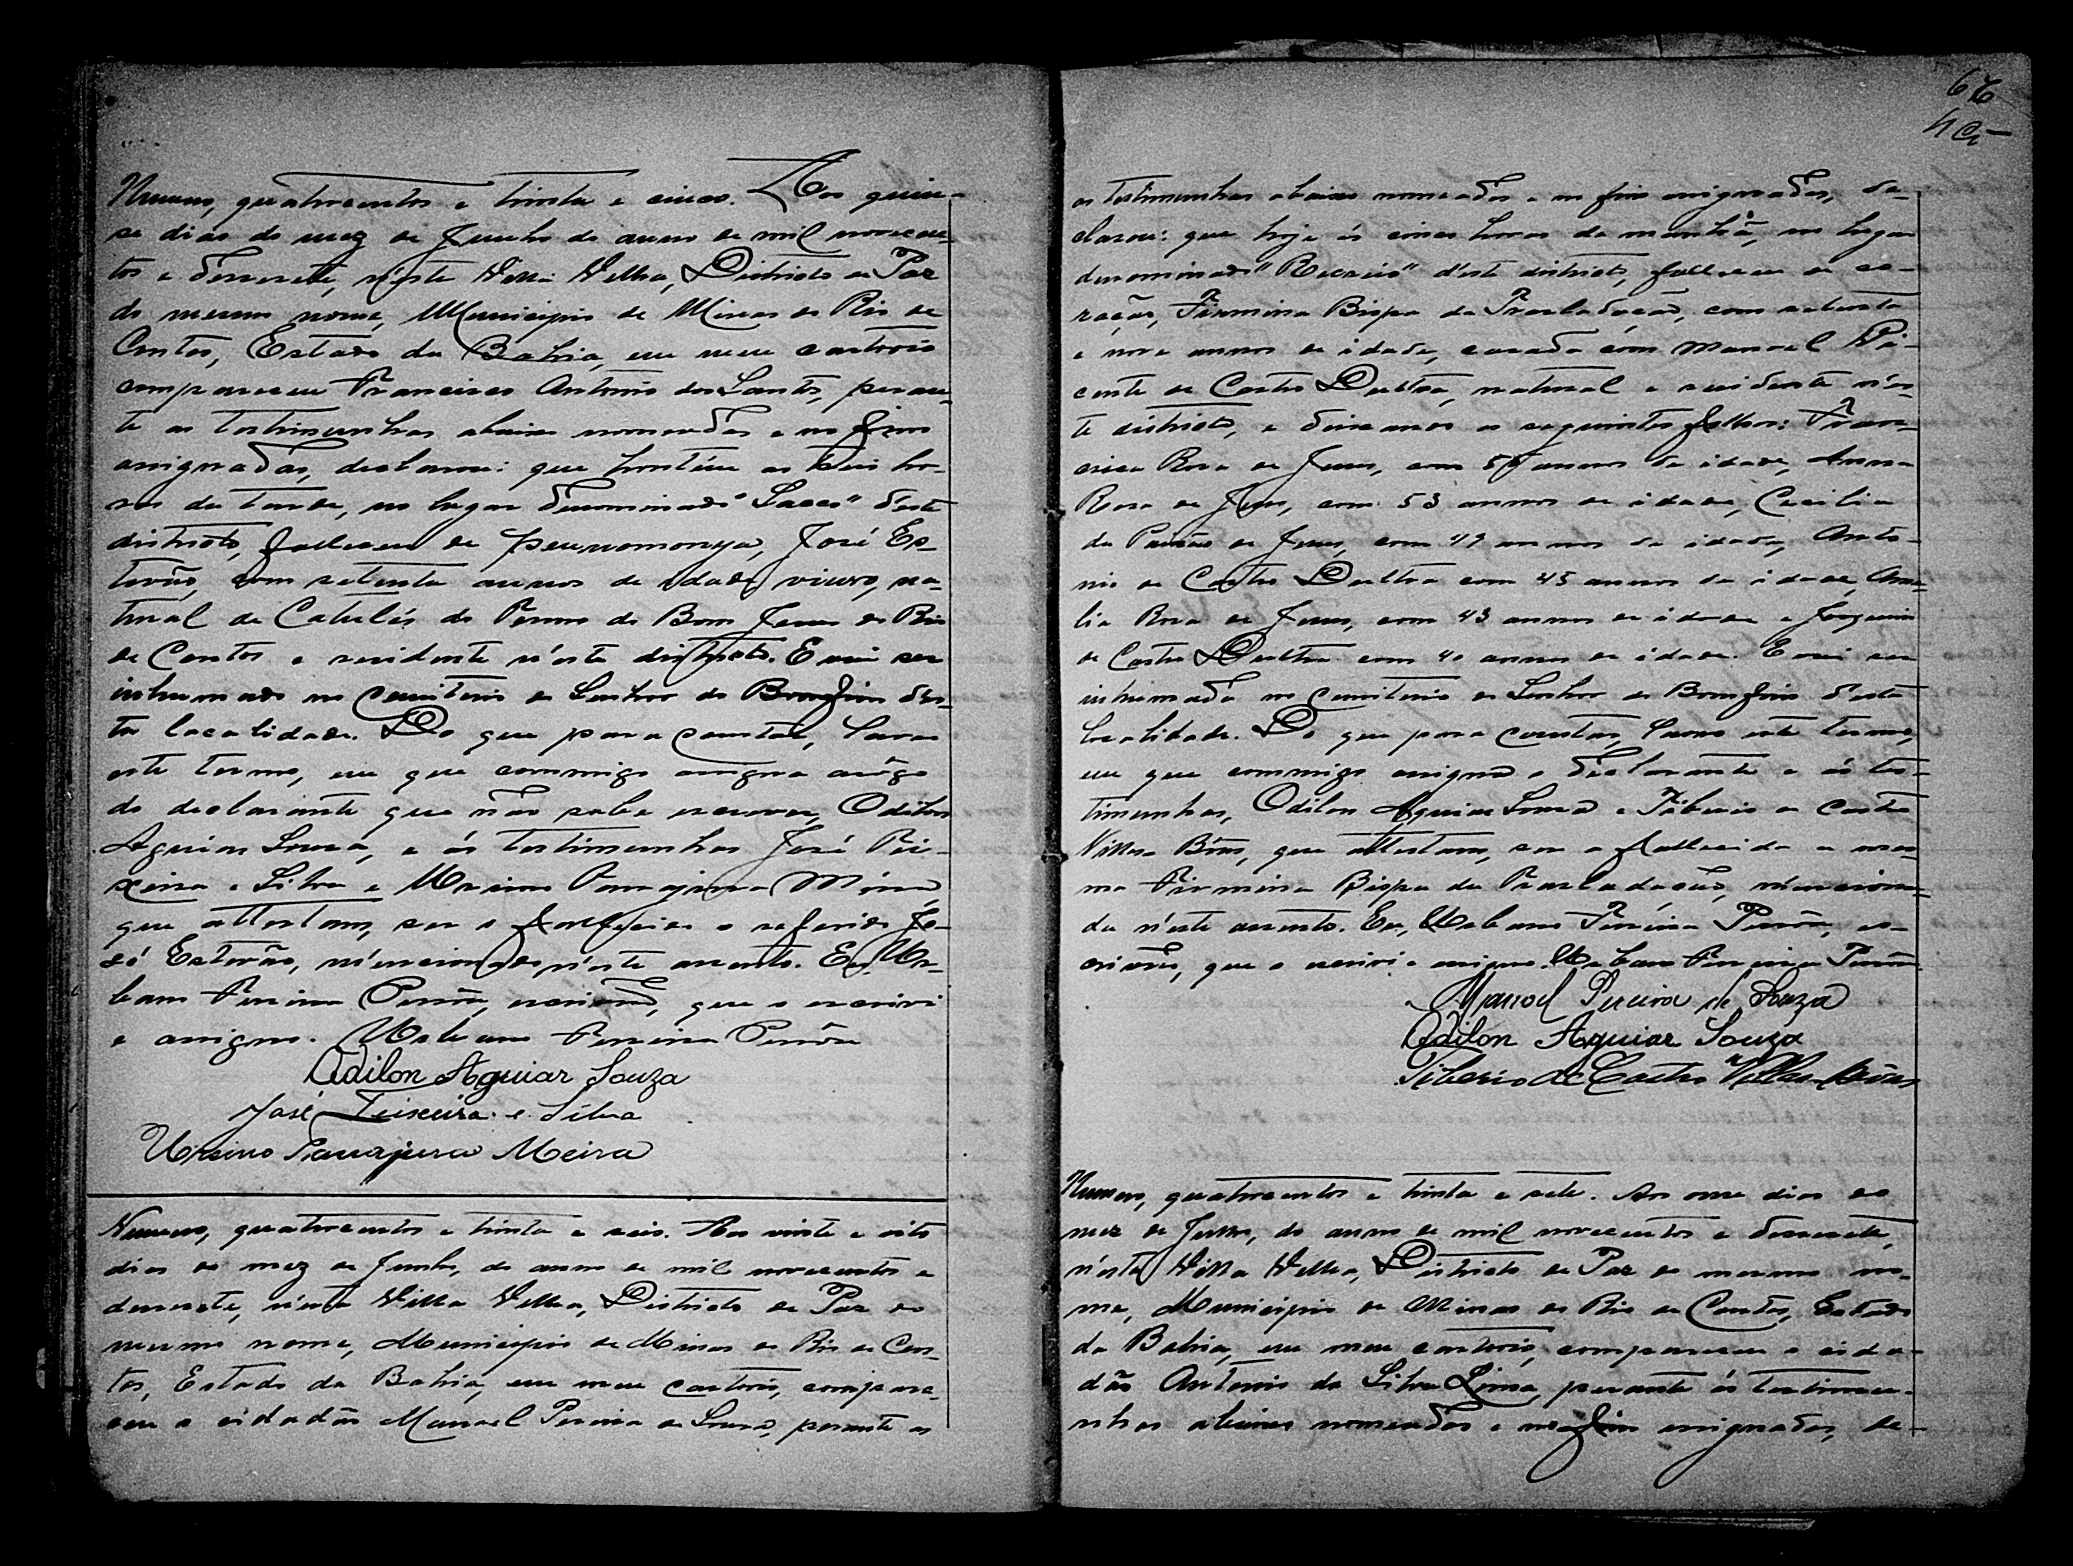 Numero, quatrocentos e trinta e cinco. Aos quin-
se dias do mez de Junho do anno de mil novecen-
tos e desesete, n'esta Villa Velha, Districto de Paz
do mesmo nome, Municipio de Minas do Rio de
Contas, Estado da Bahia, em meu cartorio
compareceu Francisco Antonio dos Santos, peran-
te as testimunhas abaixo nomeadas e no fim
assignadas, declarou: que hontem as seis ho-
ras da tarde, no lugar denominado "Sacco" d'este
districto, falleceu de pneumonya, José Es-
tevão, com setenta annos de idade, viuvo, na-
tural de Catulés do Termo do Bom Jesus do Rio
de Contas e residente n'este districto. E vai ser
inhumado no cemiterio do Senhor do Bomfim des-
ta localidade. Do que para constar, lavro
este termo, em que commigo assigna arôgo
do declarante que não sabe escrever, Odilon
Aguiar Souza, e ás testimunhas José Tei-
xeira e Silva e Ursino Tanajura Meira
que attestam, ser o fallecido o referido Jo-
sé Estevão, mencionado n'este assento. Eu, Ur-
bano Ferreira Pessôa, escrivão, que o escrevi
e assigno. Urbano Ferreira Pessôa
Odilon Aguiar Souza
José Teixeira e Silva
Ursino Tanajura Meira
Numero, quatrocentos e trinta e seis. Aos vinte e oito
dias do mez de Junho, do anno de mil novecentos e
desesete, n'esta Villa Velha, Districto de Paz do
mesmo nome, Municipio de Minas do Rio de Con-
tas, Estado da Bahia, em meu cartorio, compare-
ceu o cidadão Manoel Pereira de Souza, perante as
as testimunhas abaixo nomeados e no fim assignados, de-
clarou: que hoje ás cinco horas da manhã, no lugar
denominado "Recreio" d'este districto, falleceu de co-
ração, Firmina Bispa da Trasladação, com setenta
e nove annos de idade, casada com Manoel Vi-
cente de Castro Dultra, natural e residente n'es-
te districto, e deixamos os seguintes filhos: Fran-
cisca Rosa de Jesus, com annos de idade, Anna
Rosa de Jesus, com 53 annos de idade, Cecilia
da Paixão de Jesus, com 49 annos de idade, Anto-
nio de Castro Dultra com 45 annos de idade, Ame-
lia Rosa de Jesus, com 43 annos de idade e Joaquim
de Castro Dultra com 40 annos de idade. E vai ser
inhumada no cemiterio do Senhor do Bomfim d'esta
localidade. Do que para constar, lavro este termo,
em que commigo assigna o declarante e ás tes-
timunhas, Odilon Aguiar Souza e Tiberio de Castro
Villas Bôas, que attestam, ser a fallecida a mes-
ma Firmina Bispa da Trasladação, menciona-
da n'este assento. Eu, Urbano Ferreira Pessôa, es-
crivão, que o escrevi e assigno. Urbano Ferreira Pessôa
Manoel Pereira de Souza
Odilon Aguiar Souza
Tiberio de Castro Villas-Bôas
Numero, quatrocentos e trinta e sete. Aos onze dias do
mez de Julho, do anno de mil novecentos e desesete,
n'esta Villa Velha, Districto de Paz do mesmo no-
me, Municipio de Minas do Rio de Contas, Estado
da Bahia, em meu cartorio, compareceu o cida-
dão Antonio da Silva Lima, perante ás testimu-
nhas abaixo nomeados e no fim assignados, de-